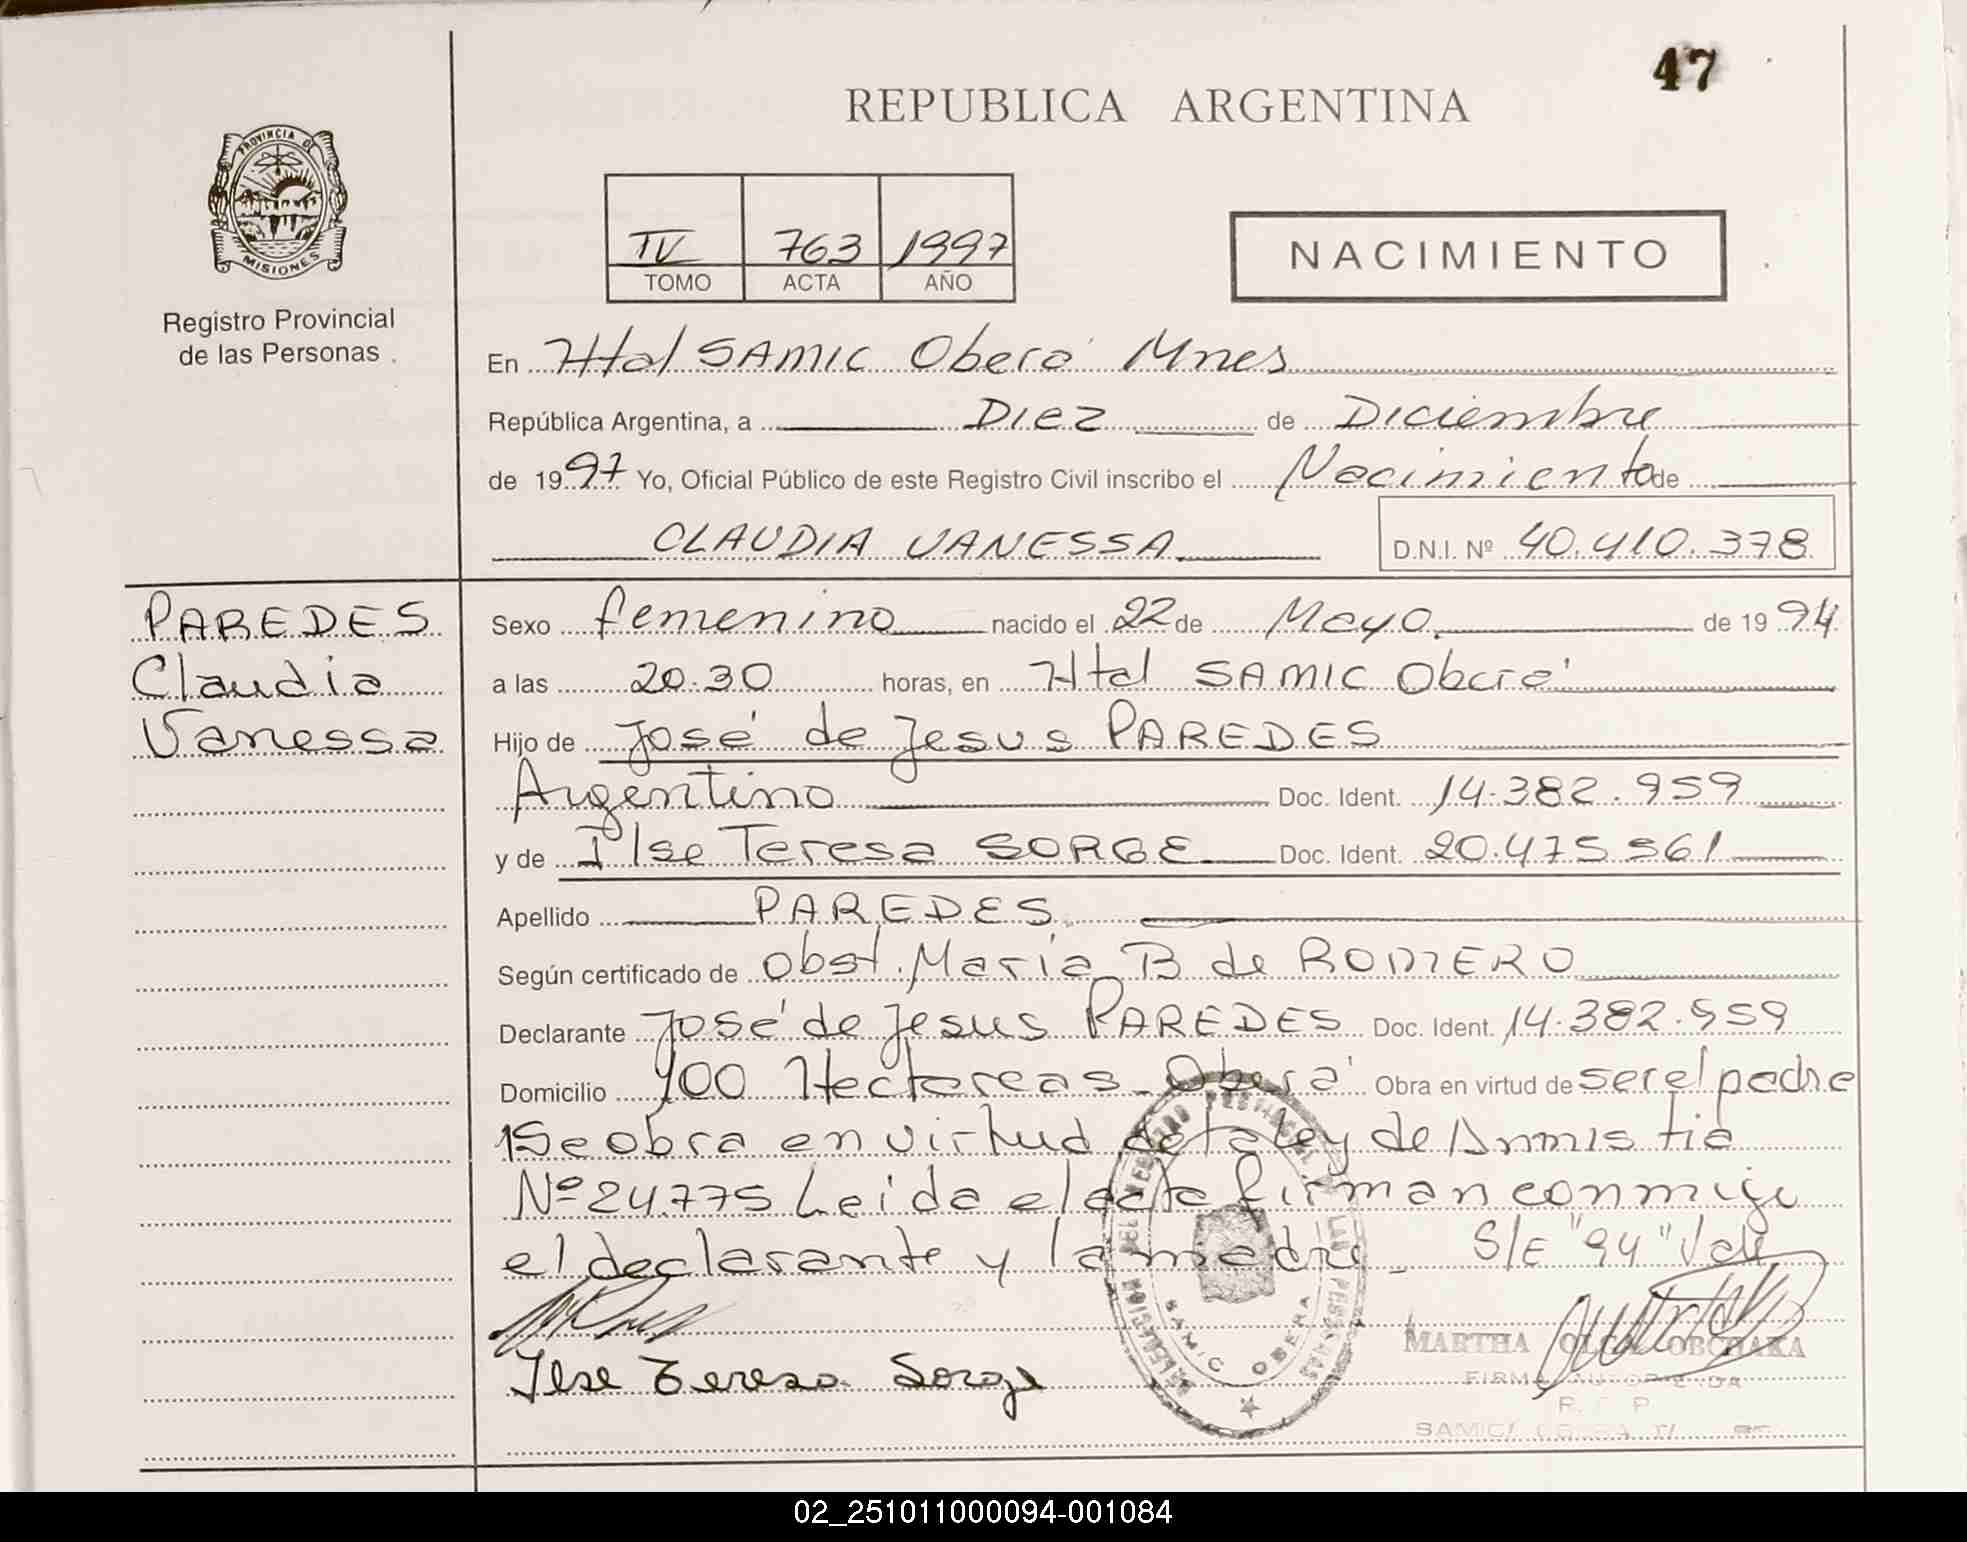 47
REPUBLICA ARGENTINA
PROVINCIA DE
MISIONES
Registro Provincial
de las Personas
IV 763 1997
TOMO ACTA AÑO
NACIMIENTO
En Htal SAMIC Oberá Mnes
República Argentina, a Diez de Diciembre
de 1997 Yo, Oficial Público de este Registro Civil inscribo el Nacimiento de
CLAUDIA VANESSA D.N.I. Nº 40.410.378
PAREDES
Claudia
Vanessa
Sexo femenino nacido el 22 de Mayo de 1994
a las 20.30 horas, en Htal SAMIC Oberá
Hijo de José de Jesus PAREDES
Argentino Doc. Ident. 14.382.959
y de Ilse Teresa SORGE Doc. Ident. 20.475.561
Apellido PAREDES
Según certificado de obst. Maria B de ROMERO
Declarante José de Jesus PAREDES Doc. Ident. 14.382.959
Domicilio 100 Hectareas - Oberá Obra en virtud de ser el padre
Se obra en virtud de la ley de Amnistia
Nº 24.775 Leida el acta firman conmigo
el declarante y la madre - S/E "94" Vale
Ilse Teresa Sorge
SAMIC OBERA
MARTHA OLGA
02_251011000094-001084